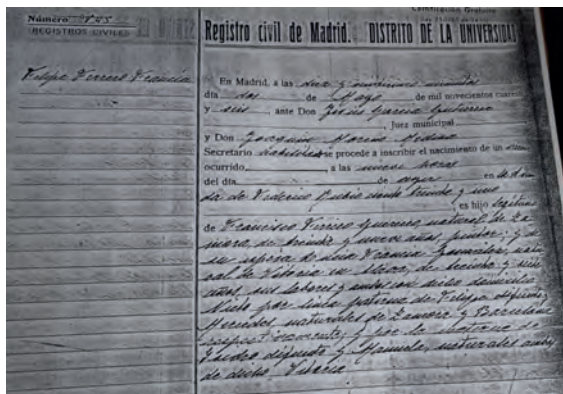 Número 845
REGISTROS CIVILES
Registro civil de Madrid. DISTRITO DE LA UNIVERSIDAD
Felipe Vivero Francia
En Madrid, a las diez y
día dos de Mayo de mil novecientos cuaren
y seis, ante Don Jesús García Gutiérrez
, Juez municipal
y Don Joaquín
Secretario habilitado se procede a inscribir el nacimiento de un
ocurrido, a las nueve horas
del día de ayer en la de
da de Federico Rubio ciento treinta y uno
, es hijo legítimo
de Francisco Vivero Guerrero, natural de Za
mora, de treinta y nueve años, pintor; y de
su esposa Francia González, natu
ral de Vitoria en Alava, de treinta y siete
años, sus labores y ambos con dicho domicilio
Nieto por línea paterna de Felipe difunto y
Mercedes naturales de Zamora y Barcelona
respectivamente; y por la materna de
Isidro difunto y Manuela, naturales ambos
de dicho Vitoria